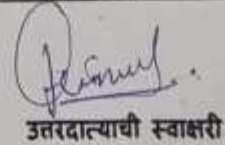 उत्तरदात्याची स्वाक्षरी